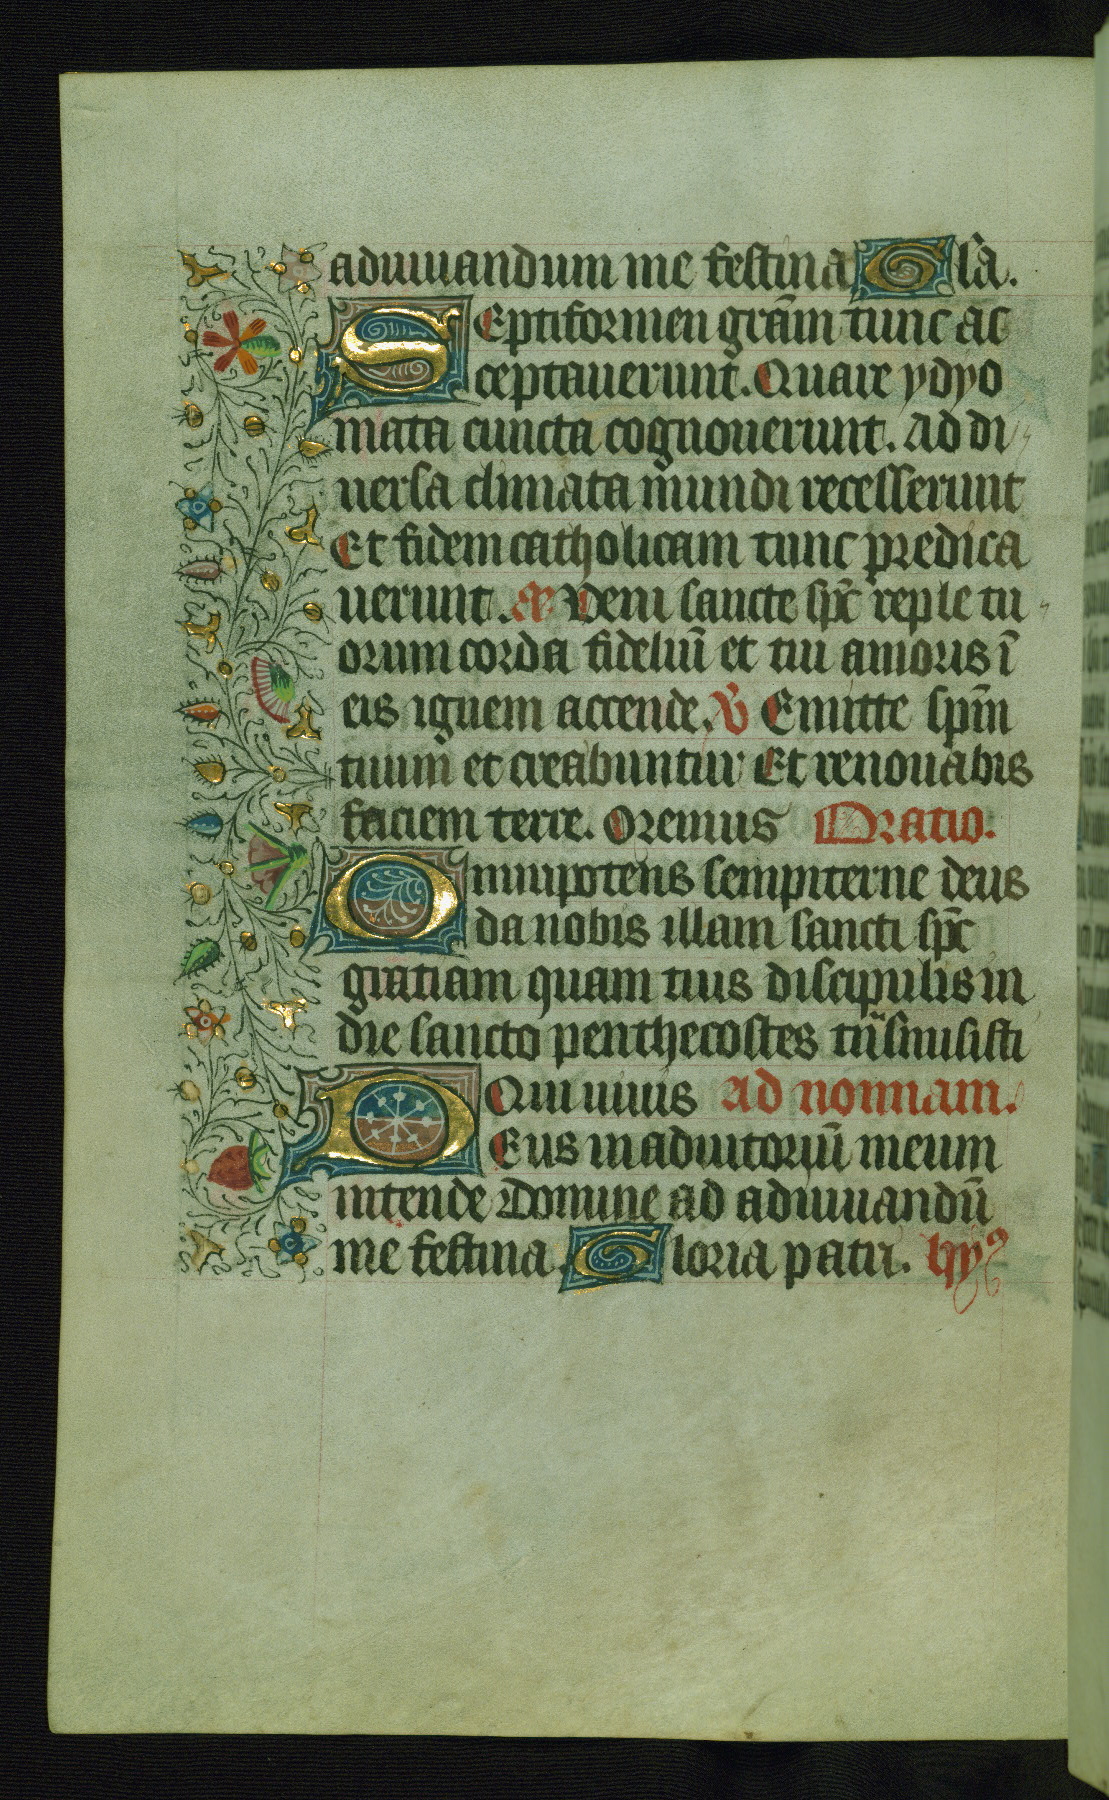 adiuuandum me festina Gl̃a.
Septiformen gr̃am tunc ac
ceptauerunt. Quare ydyo
mata cuncta cognouerunt. Ad di
uersa climata mundi recesserunt
Et fidem catholicam tunc predica
uerunt. añ Veni sancte sp̃c reple tu
orum corda fideliũ et tui amoris ĩ
eis ignem accende. ℣ Emitte sp̃m
tuum et creabuntur Et renouabis
faciem terre. Oremus Oratio.
Omnipotens sempiterne deus
da nobis illam sancti sp̃c
gratiam quam tuis discipulis in
die sancto penthecostes trãsmisisti
Qui uiuis Ad nonnam.
Deus in adiutoriũ meum
intende Domine ad adiuuandũ
me festina. Gloria patri. hyꝰ